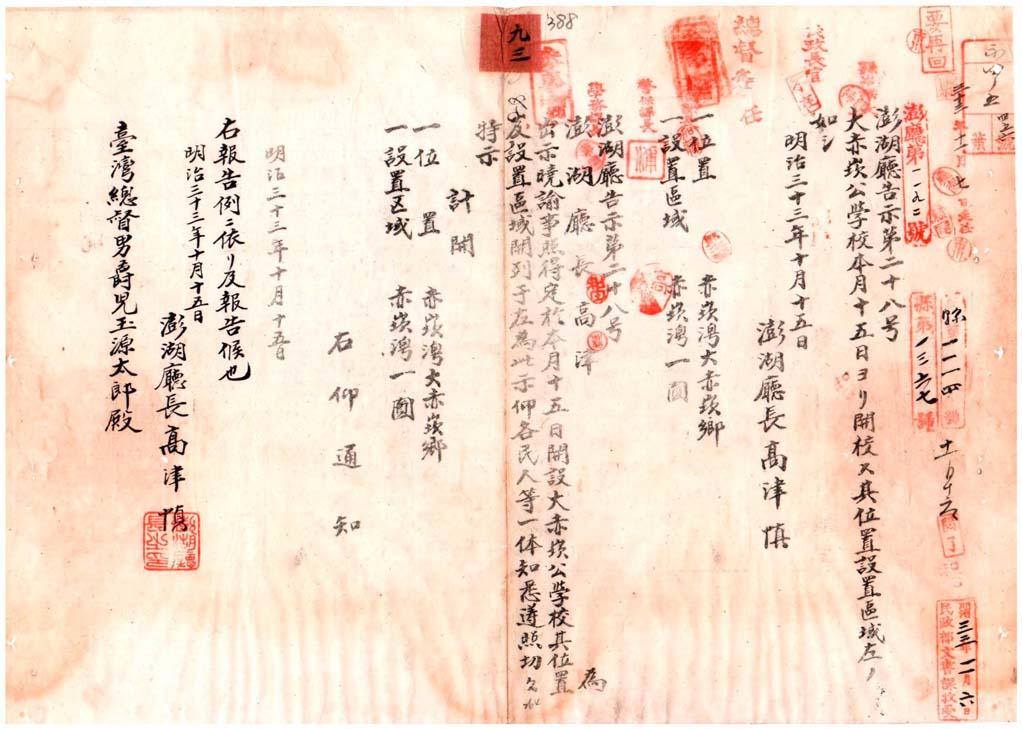 388
九三
要再回
澎廳第一一九二號
澎湖廳告示第二十八号
大赤崁公學校本月十五日ヨリ開校ス其位置設置區域左ノ
如シ
明治三十三年十月十五日
澎湖廳長高津慎
一位置 赤崁灣大赤崁鄉
一設置區域 赤崁灣一圓
澎湖廳告示第二十八号
澎湖廳長高津 為
出示曉諭事照得定於本月十五日開設大赤崁公學校其位置
及設置區域開列于左為此示仰各民人等一体知悉遵照切
特示
計開
一位置 赤崁灣大赤崁鄉
一設置区域 赤崁灣一圓
右仰通知
明治三十三年十月十五日
右報告例ニ依リ及報告候也
明治三十三年十月十五日
澎湖廳長高津慎
臺灣總督男爵児玉源太郎殿
縣第一三六七號
明治三三年一一月六日
民政部文書課收受
總督委任
民政長官
警保課長
學務課